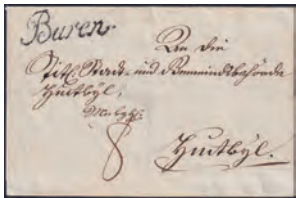 Buren
An die
Titl. Stadt- und Gemeindsbehörde
Huttwÿl,
8
Huttwÿl.